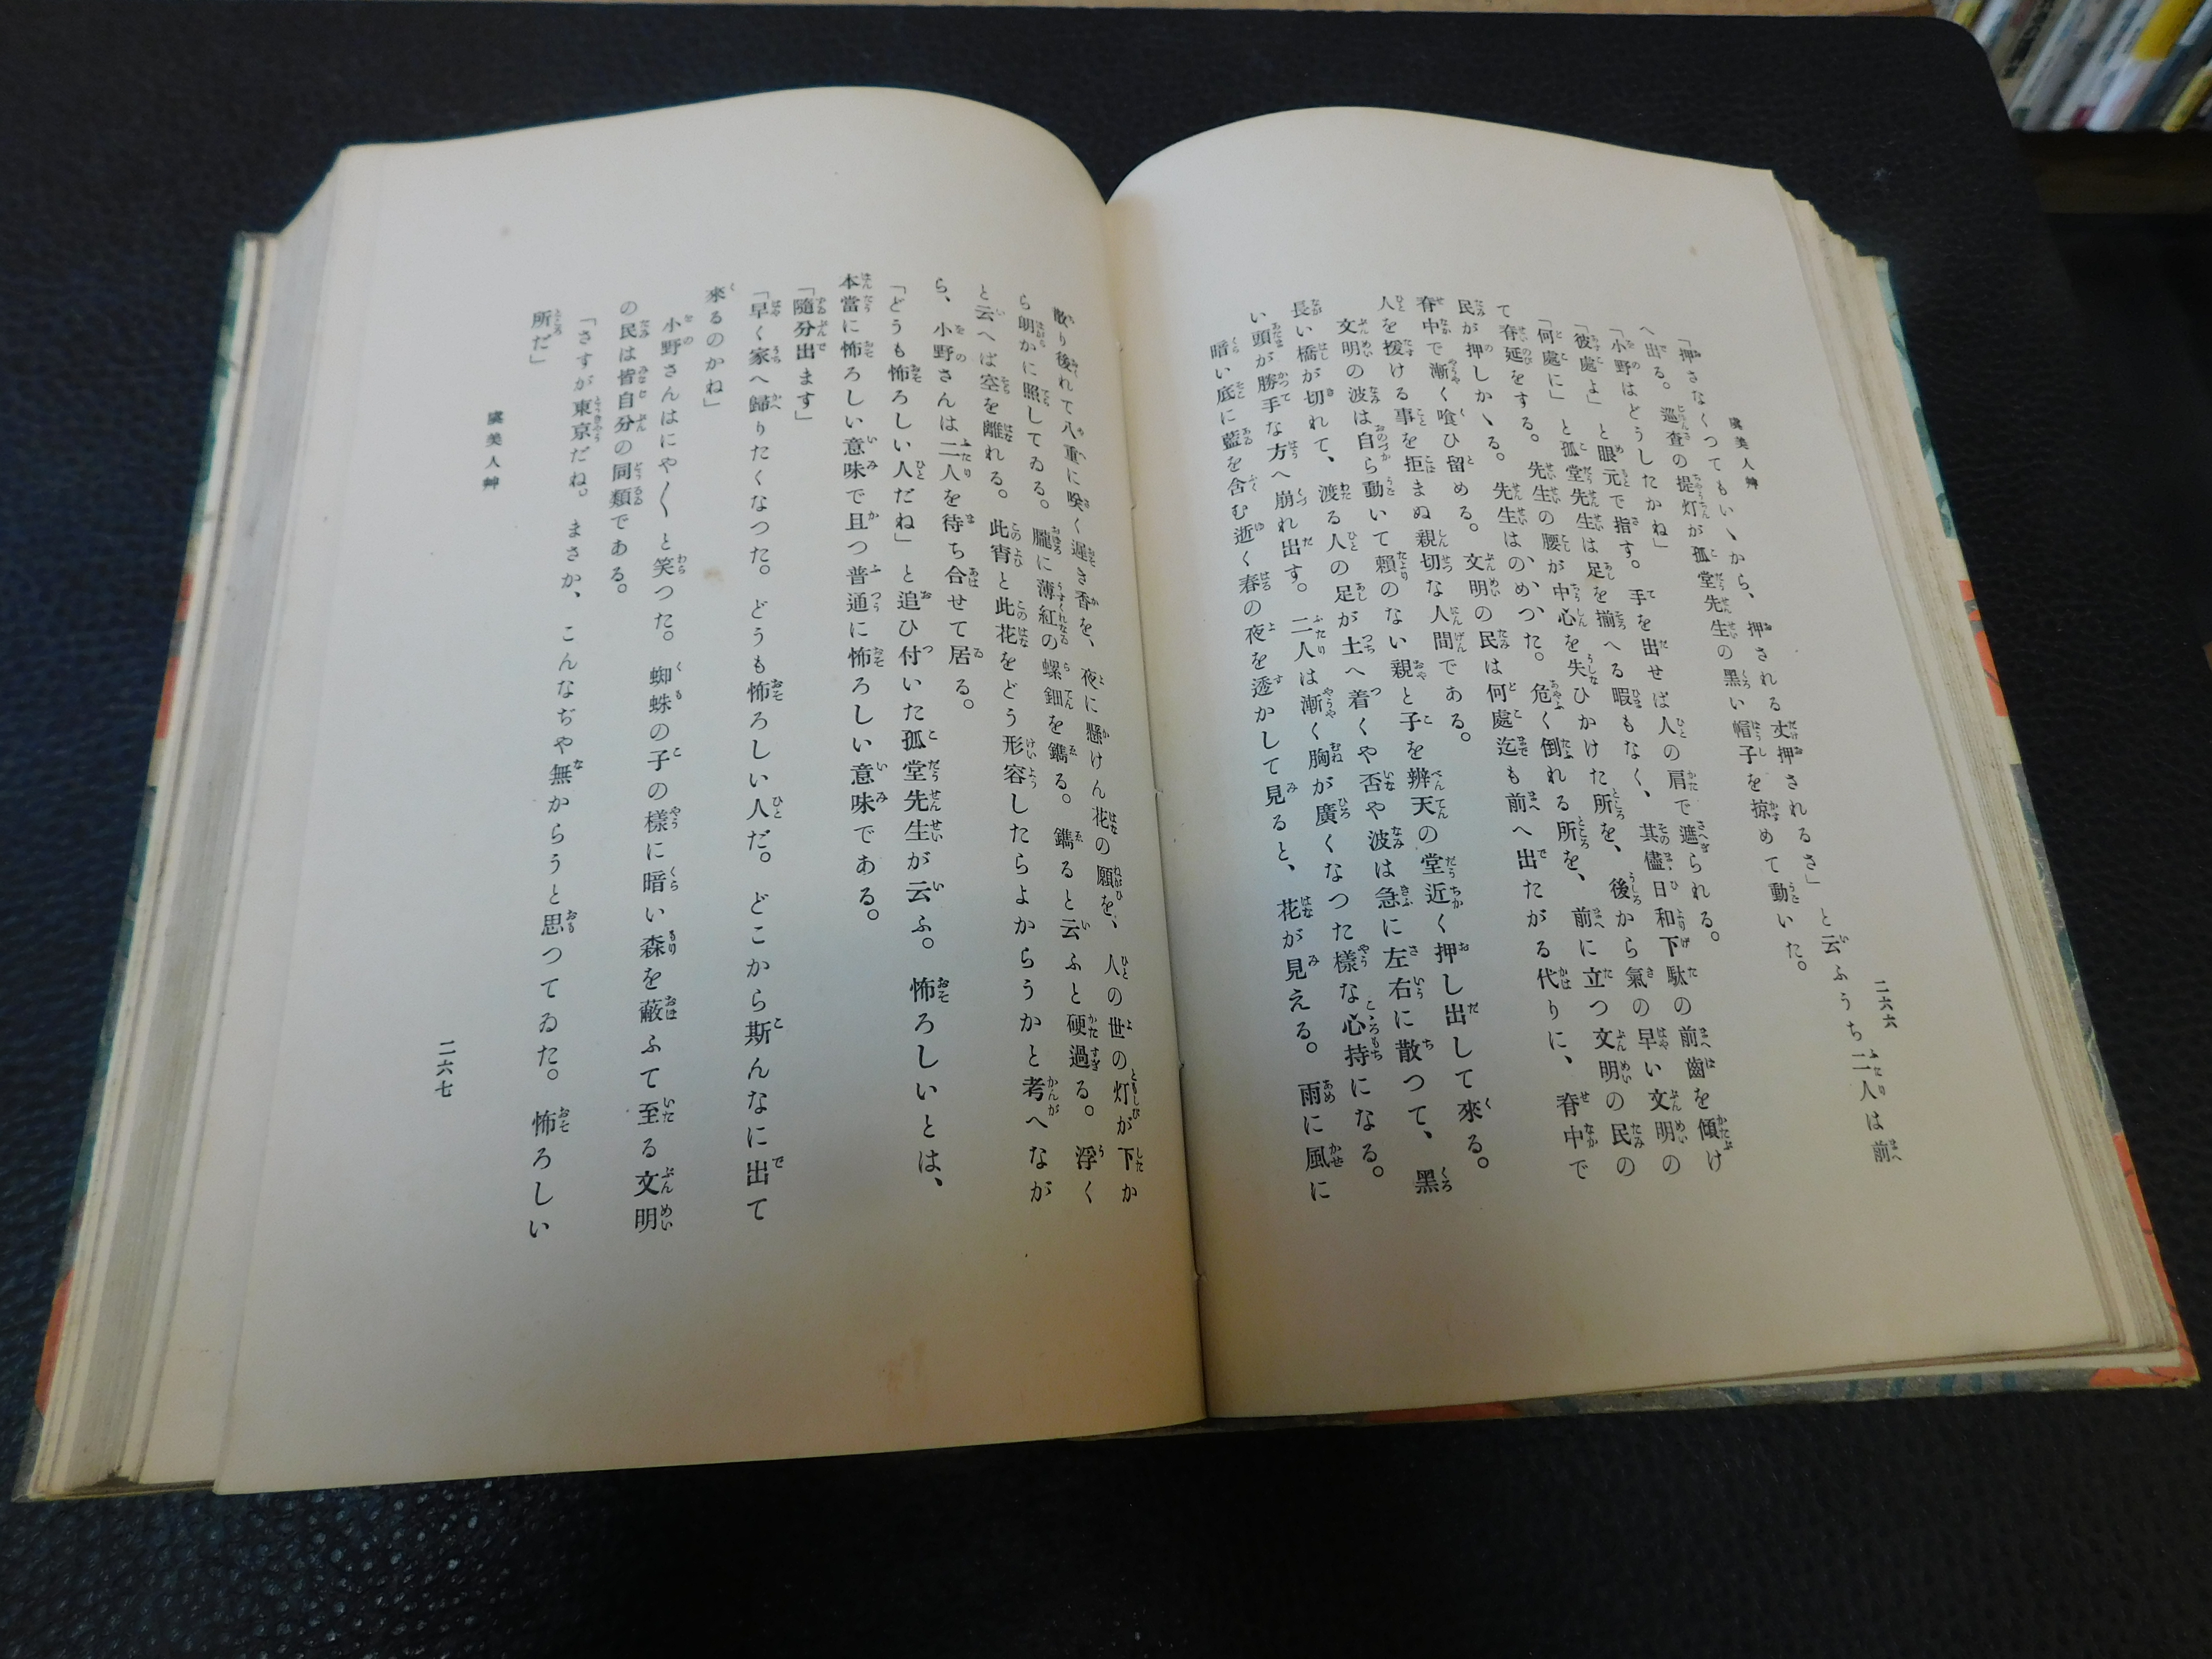 虞美人艸
二六六
「押さなくつてもいゝから、押される丈押されるさ」と云ふうち二人は前
へ出る。巡査の提灯が孤堂先生の黒い帽子を掠めて動いた。
「小野はどうしたかね」
「彼處よ」と眼元で指す。手を出せば人の肩で遮ぎられる。
「何處に」と孤堂先生は足を揃へる暇もなく、其儘日和下駄の前齒を傾け
て脊延をする。先生の腰が中心を失ひかけた所を、後から氣の早い文明の
民が押しかゝる。先生は、のめつた。危く倒れる所を、前に立つ文明の民の
脊中で漸く喰ひ留める。文明の民は何處迄も前へ出たがる代りに、脊中で
人を援ける事を拒まぬ親切な人間である。
文明の波は自ら動いて頼のない親と子を辨天の堂近く押し出して來る。
長い橋が切れて、渡る人の足が土へ着くや否や波は急に左右に散つて、黒
い頭が勝手な方へ崩れ出す。二人は漸く胸が廣くなつた樣な心持になる。
暗い底に藍を含む逝く春の夜を透かして見ると、花が見える。雨に風に
散り後れて八重に咲く遲き香を、夜に懸けん花の願を、人の世の灯が下か
ら朗かに照してゐる。朧に薄紅の螺鈿を鐫る。鐫ると云ふと硬過る。浮く
と云へば空を離れる。此宵と此花をどう形容したらよからうかと考へなが
ら、小野さんは二人を待ち合せて居る。
「どうも怖ろしい人だね」と追ひ付いた孤堂先生が云ふ。怖ろしいとは、
本當に怖ろしい意味で且つ普通に怖ろしい意味である。
「隨分出ます」
「早く家へ歸りたくなつた。どうも怖ろしい人だ。どこから斯んなに出て
來るのかね」
小野さんはにや〱と笑つた。蜘蛛の子の樣に暗い森を蔽ふて至る文明
の民は皆自分の同類である。
「さすが東京だね。まさか、こんなぢや無からうと思つてゐた。怖ろしい
所だ」
虞美人艸
二六七